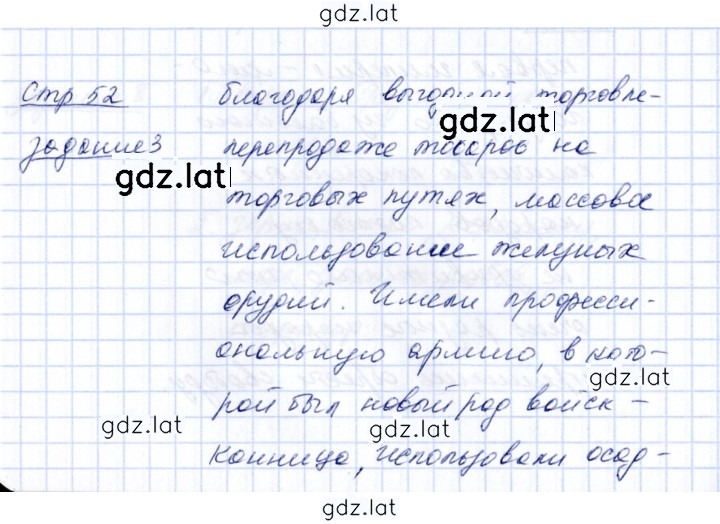 gdz.lat
Стр 52 благодаря выгодной торговле-
задание3 перепродаже товаров на
gdz.lat
gdz.lat
торговых путях, массовое
использование железных
орудий. Имели професси-
ональную армию, в кото-
gdz.lat
рой был новый род войск -
gdz.lat
gdz.lat
конница, использовали осад-
gdz.lat